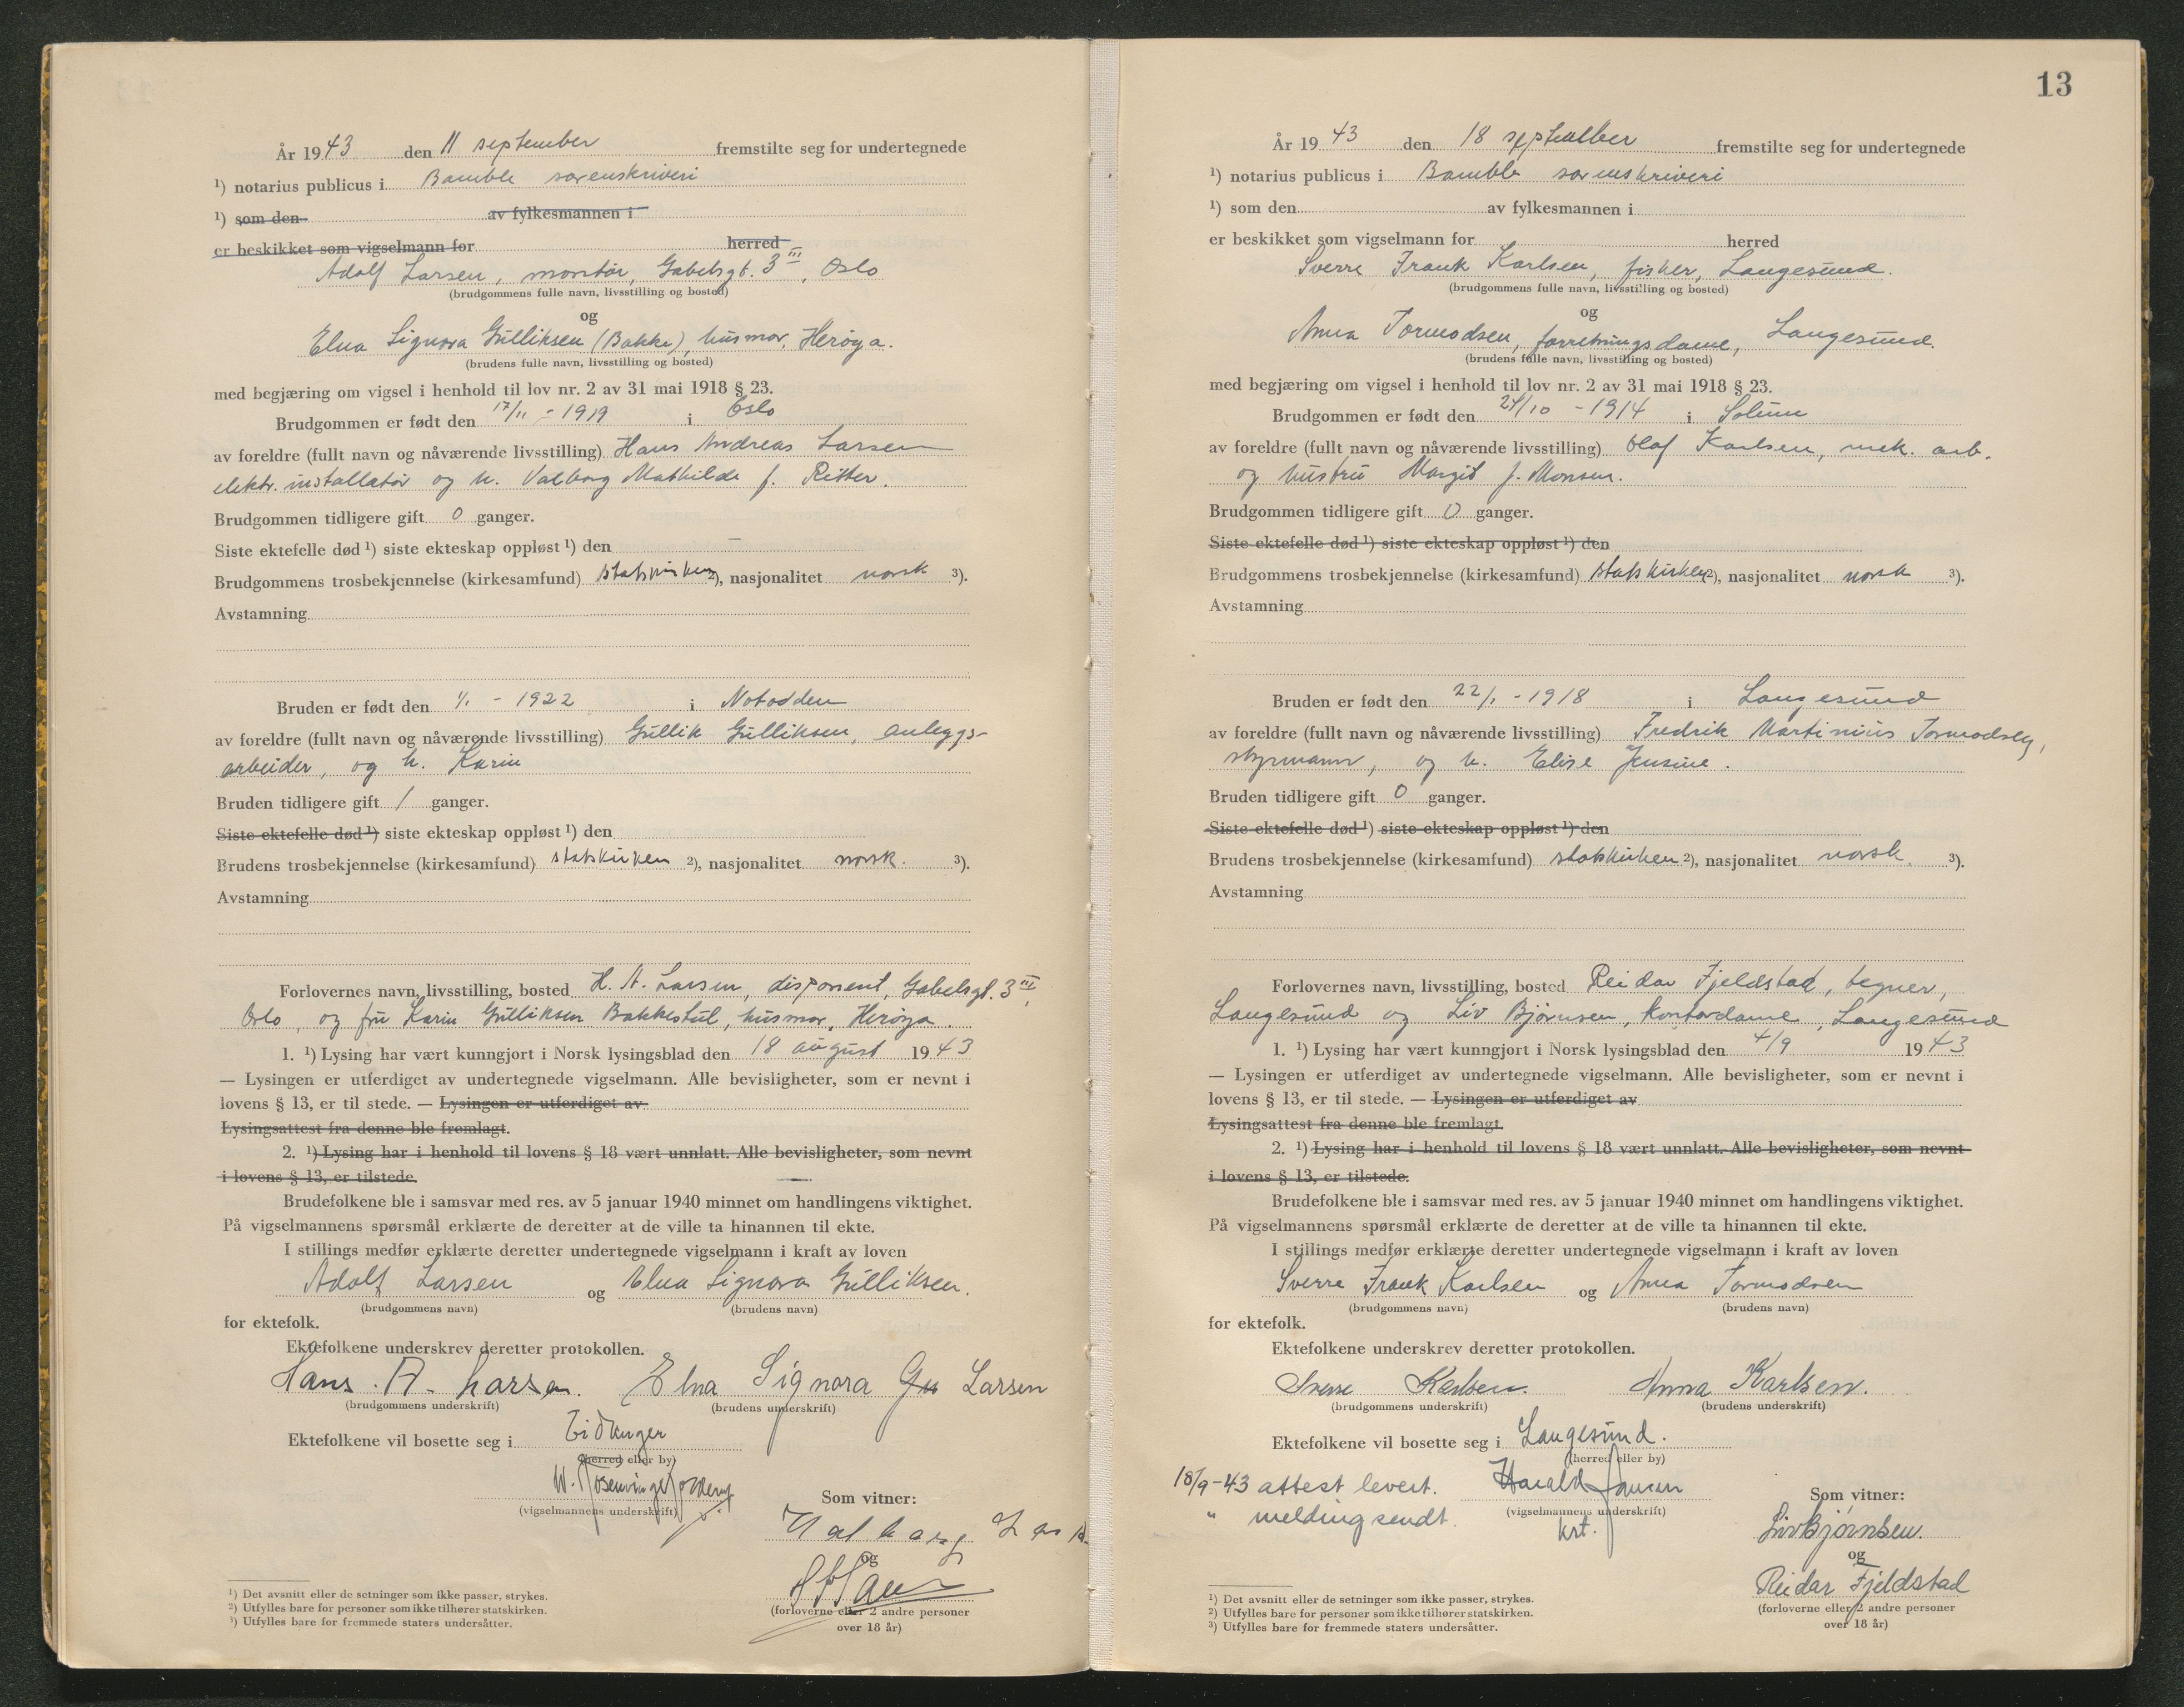 År 1943 den 11 september fremstilte seg for undertegnede
¹) notarius publicus i Bamble sorenskriveri
¹) som den av fylkesmannen i
er beskikket som vigselmann for herred
Adolf Larsen, montør, Gabelsgt. 3 III, Oslo
(brudgommens fulle navn, livsstilling og bosted)
og
Elna Signora Gulliksen (Bakke), husmor, Herøya.
(brudens fulle navn, livsstilling og bosted)
med begjæring om vigsel i henhold til lov nr. 2 av 31 mai 1918 § 23.
Brudgommen er født den 17/11 - 1919 i Oslo
av foreldre (fullt navn og nåværende livsstilling) Hans Andreas Larsen
elektr. installatør og h. Valborg Mathilde f. Ritter.
Brudgommen tidligere gift 0 ganger.
Siste ektefelle død ¹) siste ekteskap oppløst ¹) den —
Brudgommens trosbekjennelse (kirkesamfund) statskirken ²), nasjonalitet norsk ³).
Avstamning
Bruden er født den 1/1 - 1922 i Notodden
av foreldre (fullt navn og nåværende livsstilling) Gullik Gulliksen, anleggs-
arbeider, og h. Karin
Bruden tidligere gift 1 ganger.
Siste ektefelle død ¹) siste ekteskap oppløst ¹) den
Brudens trosbekjennelse (kirkesamfund) statskirken ²), nasjonalitet norsk. ³).
Avstamning
Forlovernes navn, livsstilling, bosted H. A. Larsen, disponent, Gabelsgt. 3 III,
Oslo, og fru Karin Gulliksen Bakkestul, husmor, Herøya.
1. ¹) Lysing har vært kunngjort i Norsk lysingsblad den 18 august 1943
— Lysingen er utferdiget av undertegnede vigselmann. Alle bevisligheter, som er nevnt i
lovens § 13, er til stede. — Lysingen er utferdiget av
Lysingsattest fra denne ble fremlagt.
2. ¹) Lysing har i henhold til lovens § 18 vært unnlatt. Alle bevisligheter, som nevnt
i lovens § 13, er tilstede.
Brudefolkene ble i samsvar med res. av 5 januar 1940 minnet om handlingens viktighet.
På vigselmannens spørsmål erklærte de deretter at de ville ta hinannen til ekte.
I stillings medfør erklærte deretter undertegnede vigselmann i kraft av loven
Adolf Larsen og Elna Signora Gulliksen.
(brudgommens navn) (brudens navn)
for ektefolk.
Ektefolkene underskrev deretter protokollen.
Hans. A. Larsen. Elna Signora Gu Larsen
(brudgommens underskrift) (brudens underskrift)
Ektefolkene vil bosette seg i Eidanger
(herred eller by)
W. Rosenvinge
(vigselmannens underskrift)
Som vitner:
Valborg
og
(forloverne eller 2 andre personer
over 18 år)
¹) Det avsnitt eller de setninger som ikke passer, strykes.
²) Utfylles bare for personer som ikke tilhører statskirken.
³) Utfylles bare for fremmede staters undersåtter.
13
År 1943 den 18 september fremstilte seg for undertegnede
¹) notarius publicus i Bamble sorenskriveri
¹) som den av fylkesmannen i
er beskikket som vigselmann for herred
Sverre Frank Karlsen, fisker, Langesund.
(brudgommens fulle navn, livsstilling og bosted)
og
Anna Tormodsen, forretningsdame, Langesund.
(brudens fulle navn, livsstilling og bosted)
med begjæring om vigsel i henhold til lov nr. 2 av 31 mai 1918 § 23.
Brudgommen er født den 24/10 - 1914 i Solum
av foreldre (fullt navn og nåværende livsstilling) Olaf Karlsen, mek. arb.
og hustru Margit f. Monsen.
Brudgommen tidligere gift 0 ganger.
Siste ektefelle død ¹) siste ekteskap oppløst ¹) den
Brudgommens trosbekjennelse (kirkesamfund) statskirken ²), nasjonalitet norsk ³).
Avstamning
Bruden er født den 22/1 - 1918 i Langesund
av foreldre (fullt navn og nåværende livsstilling) Fredrik Martinius Tormodsen,
styrmann, og h. Elise Jensine.
Bruden tidligere gift 0 ganger.
Siste ektefelle død ¹) siste ekteskap oppløst ¹) den
Brudens trosbekjennelse (kirkesamfund) statskirken ²), nasjonalitet norsk. ³).
Avstamning
Forlovernes navn, livsstilling, bosted Reidar Fjeldstad, tegner,
Langesund og Liv Bjørnsen, kontordame, Langesund
1. ¹) Lysing har vært kunngjort i Norsk lysingsblad den 4/9 1943
— Lysingen er utferdiget av undertegnede vigselmann. Alle bevisligheter, som er nevnt i
lovens § 13, er til stede. — Lysingen er utferdiget av
Lysingsattest fra denne ble fremlagt.
2. ¹) Lysing har i henhold til lovens § 18 vært unnlatt. Alle bevisligheter, som nevnt
i lovens § 13, er tilstede.
Brudefolkene ble i samsvar med res. av 5 januar 1940 minnet om handlingens viktighet.
På vigselmannens spørsmål erklærte de deretter at de ville ta hinannen til ekte.
I stillings medfør erklærte deretter undertegnede vigselmann i kraft av loven
Sverre Frank Karlsen og Anna Tormodsen
(brudgommens navn) (brudens navn)
for ektefolk.
Ektefolkene underskrev deretter protokollen.
Sverre Karlsen. Anna Karlsen.
(brudgommens underskrift) (brudens underskrift)
Ektefolkene vil bosette seg i Langesund.
(herred eller by)
18/9-43 attest levert. Harald Jansen
" melding sendt. (vigselmannens underskrift)
kst.
Som vitner:
Liv Bjørnsen.
og
Reidar Fjeldstad
(forloverne eller 2 andre personer
over 18 år)
¹) Det avsnitt eller de setninger som ikke passer, strykes.
²) Utfylles bare for personer som ikke tilhører statskirken.
³) Utfylles bare for fremmede staters undersåtter.